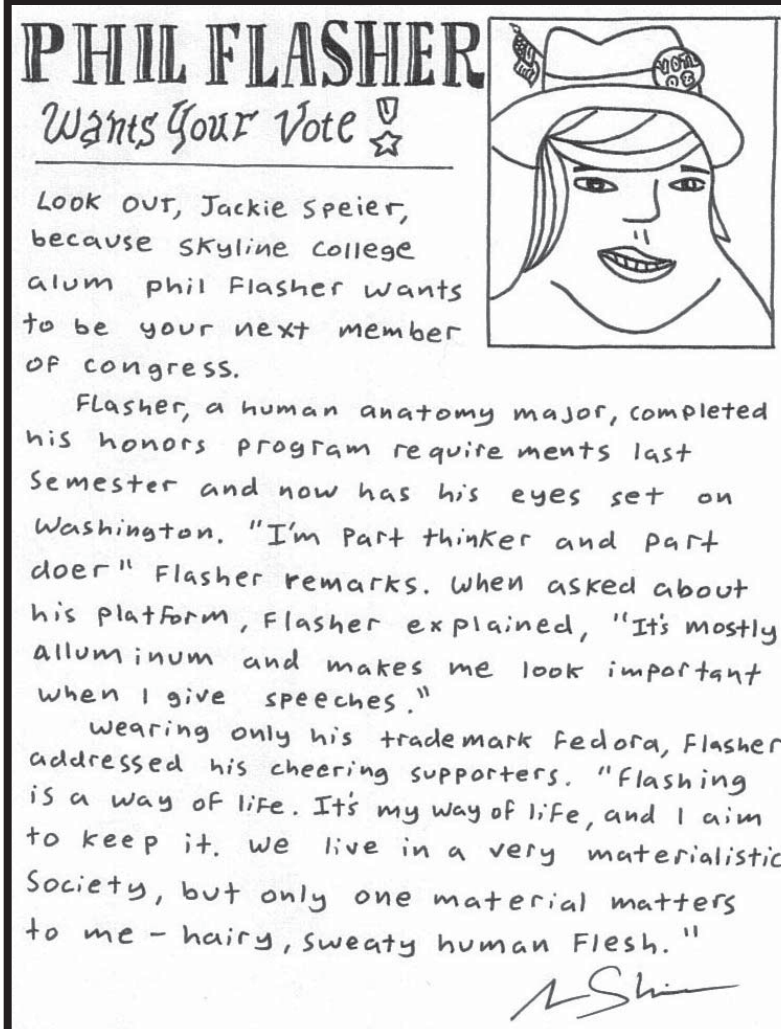 PHIL FLASHER
Wants Your Vote!
VOTE
Look out, Jackie Speier,
because Skyline College
alum Phil Flasher wants
to be your next member
of congress.
Flasher, a human anatomy major, completed
his honors program require ments last
Semester and now has his eyes set on
Washington. "I'm part thinker and part
doer" Flasher remarks. When asked about
his platform, Flasher explained, "It's mostly
alluminum and makes me look important
when I give speeches."
Wearing only his trademark fedora, Flasher
addressed his cheering supporters. "Flashing
is a way of life. It's my way of life, and I aim
to keep it. We live in a very materialistic
Society, but only one material matters
to me - hairy, sweaty human Flesh."